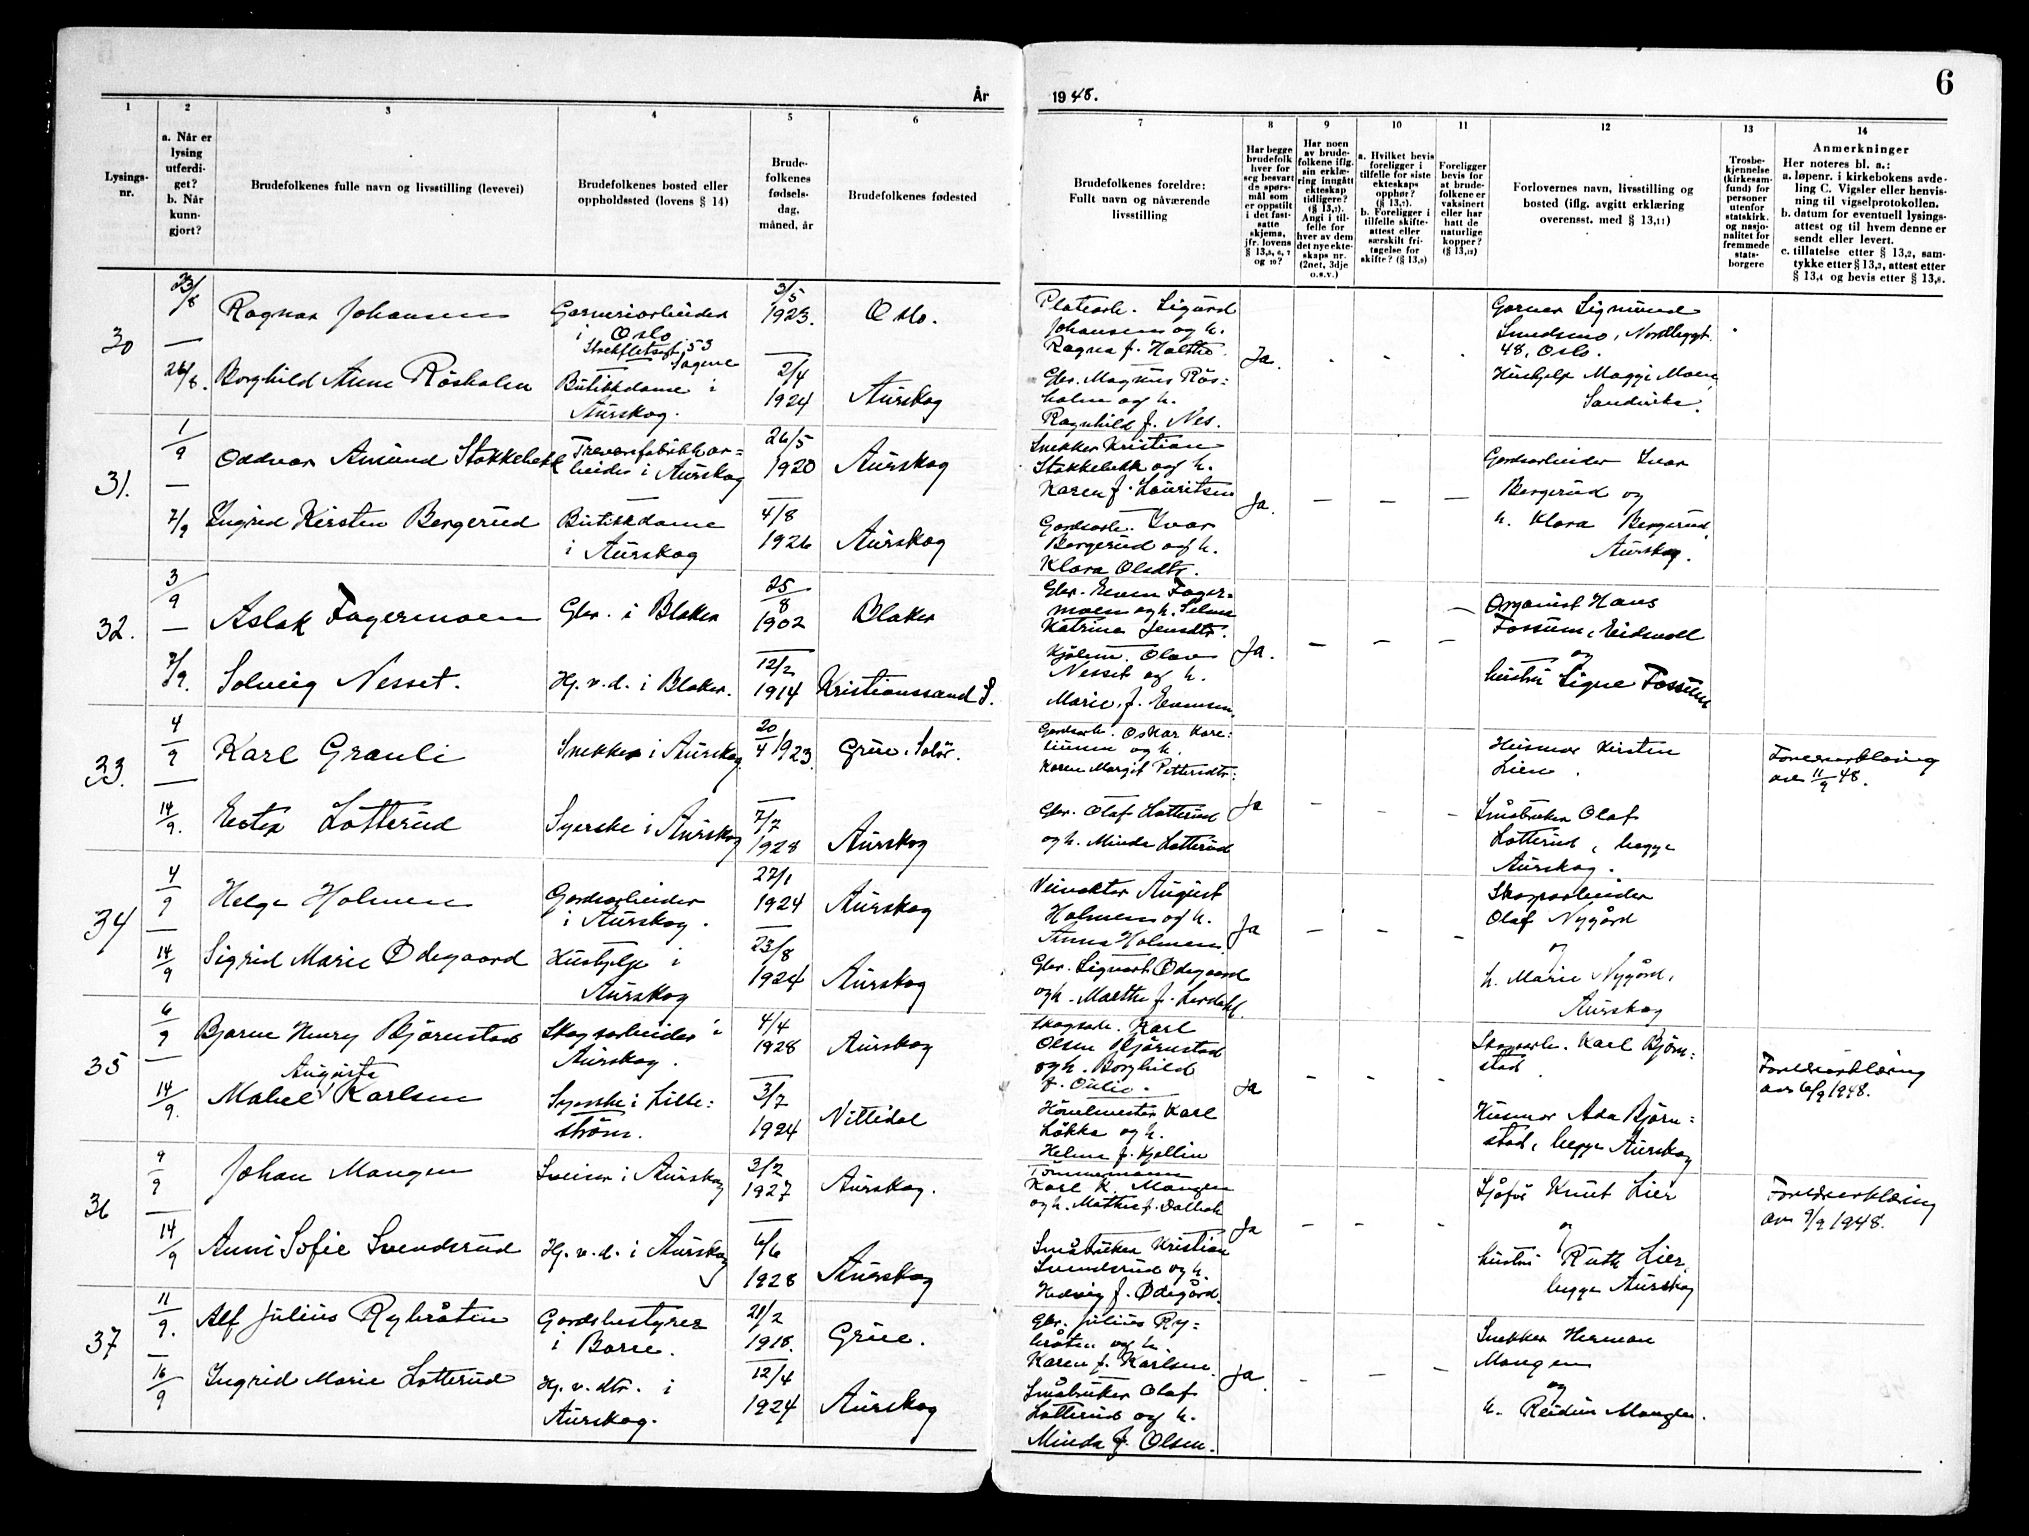 År
1948.
6
1
2
3
4
5
6
7
8
9
10
11
12
13
14
Lysings-
nr.
a. Når er
lysing
utferdi-
get?
b. Når
kunn-
gjort?
Brudefolkenes fulle navn og livsstilling (levevei)
Brudefolkenes bosted eller
oppholdssted (lovens § 14)
Brude-
folkenes
fødsels-
dag,
måned, år
Brudefolkenes fødested
Brudefolkenes foreldre:
Fullt navn og nåværende
livsstilling
Har begge
brudefolk
i hver for
seg besvart
de spørs-
mål som
er oppstilt
i det fast-
satte
skjema,
jfr. lovens
Har noen
av brude-
folkene iflg.
sin erklæ-
ring inngått
ekteskap
tidligere?
(§ 13,7).
Angi i til-
felle for
hver av dem
det nye ekte-
skaps nr.
(2net, 3dje
o.s.v.)
a. Hvilket bevis
foreligger i
tilfelle for siste
ekteskaps
opphør?
(§ 13,7).
b. Foreligger i
tilfelle skifte-
attest eller
særskilt fri-
tagelse for
skifte? (§ 13,9)
Foreligger
bevis for
at brude-
folkene er
vaksinert
eller har
hatt de
naturlige
kopper?
(§ 13,12)
Forlovernes navn, livsstilling og
bosted (iflg. avgitt erklæring
overensst. med § 13,11)
Trosbe-
kjennelse
(kirkesam-
fund) for
personer
utenfor
statskirk.
og nasjo-
nalitet for
fremmede
stats-
borgere
Anmerkninger
Her noteres bl. a.:
a. løpenr. i kirkebokens avde-
ling C. Vigsler eller henvis-
ning til vigselprotokollen.
b. datum for eventuell lysings-
attest og til hvem denne er
sendt eller levert.
c. tillatelse etter § 13,2, sam-
tykke etter § 13,3, attest etter
§ 13,4 og bevis etter § 13,8.
30
23/8
—
26/8.
Ragnar Johansen
Gartneriarbeider
i Oslo
Sagene
3/5
1923.
Oslo.
Platearb. Sigurd
Johansen og h.
Ragna f. Holthe.
Borghild Anne Rösholm
Butikkdame i
Aurskog.
2/4
1924
Aurskog
Gbr. Magnus Rös=
holm og h.
Ragnhild f. Nes.
Ja.
Gartner Sigmund
48, Oslo.
Hushjelp Maggi Moen
Sandvika.
31.
1/9
—
7/9
Oddvar Amund Stokkebekk
Trevarefabrikkar=
beider i Aurskog
26/5
1920
Aurskog
Snekker Kristian
Stokkebekk og h.
Karen f. Lauritsen
Ingrid Kirsten Bergerud
Butikkdame
i Aurskog
4/8
1926
Aurskog
Gardsarb. Ivar
Bergerud og h.
Klara Olsdtr.
Ja.
Gardsarbeider Ivar
Bergerud og
h. Klara Bergerud,
Aurskog.
32.
3/9
—
7/9.
Aslak Fagermoen
Gbr. i Blaker
25/8
1902
Blaker
Gbr. Even Fager=
moen og h. Selma
Katrine Jensdtr.
Solveig Nesset.
Hj. v. d. i Blaker.
12/2
1914
Kristianssand S.
Olav
Nesset og h.
Marie, f. Evensen.
Ja.
Organist Hans
Fossum, Eidsvoll
og
hustru Signe Fossum
33.
4/9
—
14/9.
Karl Grauli
Snekker i Aurskog.
20/4 1923.
Grue. Solör.
Gardsarb. Oskar Kare=
liussen og h.
Karen Margit Pettersdtr.
Ester Lotterud
Syerske i Aurskog
7/7
1928
Aurskog
Gbr. Olaf Lotterud
og h. Minda Lotterud
Ja
Husmor Kirsten
Lien.
Småbruker Olaf
Lotterud, begge
Aurskog.
Foreldreerklæring
av 11/9 48.
34
4/9
—
14/9
Helge Holmen
Gardsarbeider
i Aurskog.
27/1
1924
Aurskog
Veivokter August
Holmen og h.
Anna Holmen.
Sigrid Marie Ødegaard
Hushjelp i
Aurskog
23/8
1924
Aurskog
Gbr. Sigvart Ødegaard
og h. Marthe f. Lierdahl.
Ja
Skogsarbeider
Olaf Nygård
og
h. Marie Nygård,
Aurskog
35
6/9
—
14/9.
Bjarne Henry Bjørnstad
Skogsarbeider i
Aurskog.
4/4
1928
Aurskog
Skogsarb. Karl
Olsen Bjørnstad
og h. Borghild
f. Oulie.
Augusta
Mabel Karlsen
Syerske i Lille=
ström.
3/7
1924
Nittedal
Karl
Løkka og h.
Helene f. Kjellin
Ja
Skogsarb. Karl Bjørn=
stad
Husmor Ada Bjørn=
stad, begge Aurskog
Foreldreerklæring
av 6/9 1948.
36
9/9
—
14/9
Johan Mangen
Sveiser i Aurskog
3/2
1927
Aurskog.
Tømmermann
Karl K. Mangen
og h. Mathea f. Dalbak
Anni Sofie Svendsrud
Hj. v. d. i Aurskog
6/6
1928
Aurskog
Småbruker Kristian
Svendsrud og h.
Hedvig f. Ødegård.
Ja
Sjåfør Knut Lier
og
hustru Ruth Lier,
begge Aurskog
Foreldreerklæring
av 9/9 1948.
37
11/9.
—
16/9
Alf Julius Rybråten
Gardsbestyrer
i Borre.
21/2
1918.
Grue.
Gbr. Julius Ry=
bråten og h.
Karen f. Karlsen.
Ingrid Marie Lotterud
Hj. v. dtr. i
Aurskog.
12/4
1924
Aurskog
Småbruker Olaf
Lotterud og h.
Minda f. Olsen.
Ja.
Snekker Herman
Mangen
og
h. Reidun Mangen.